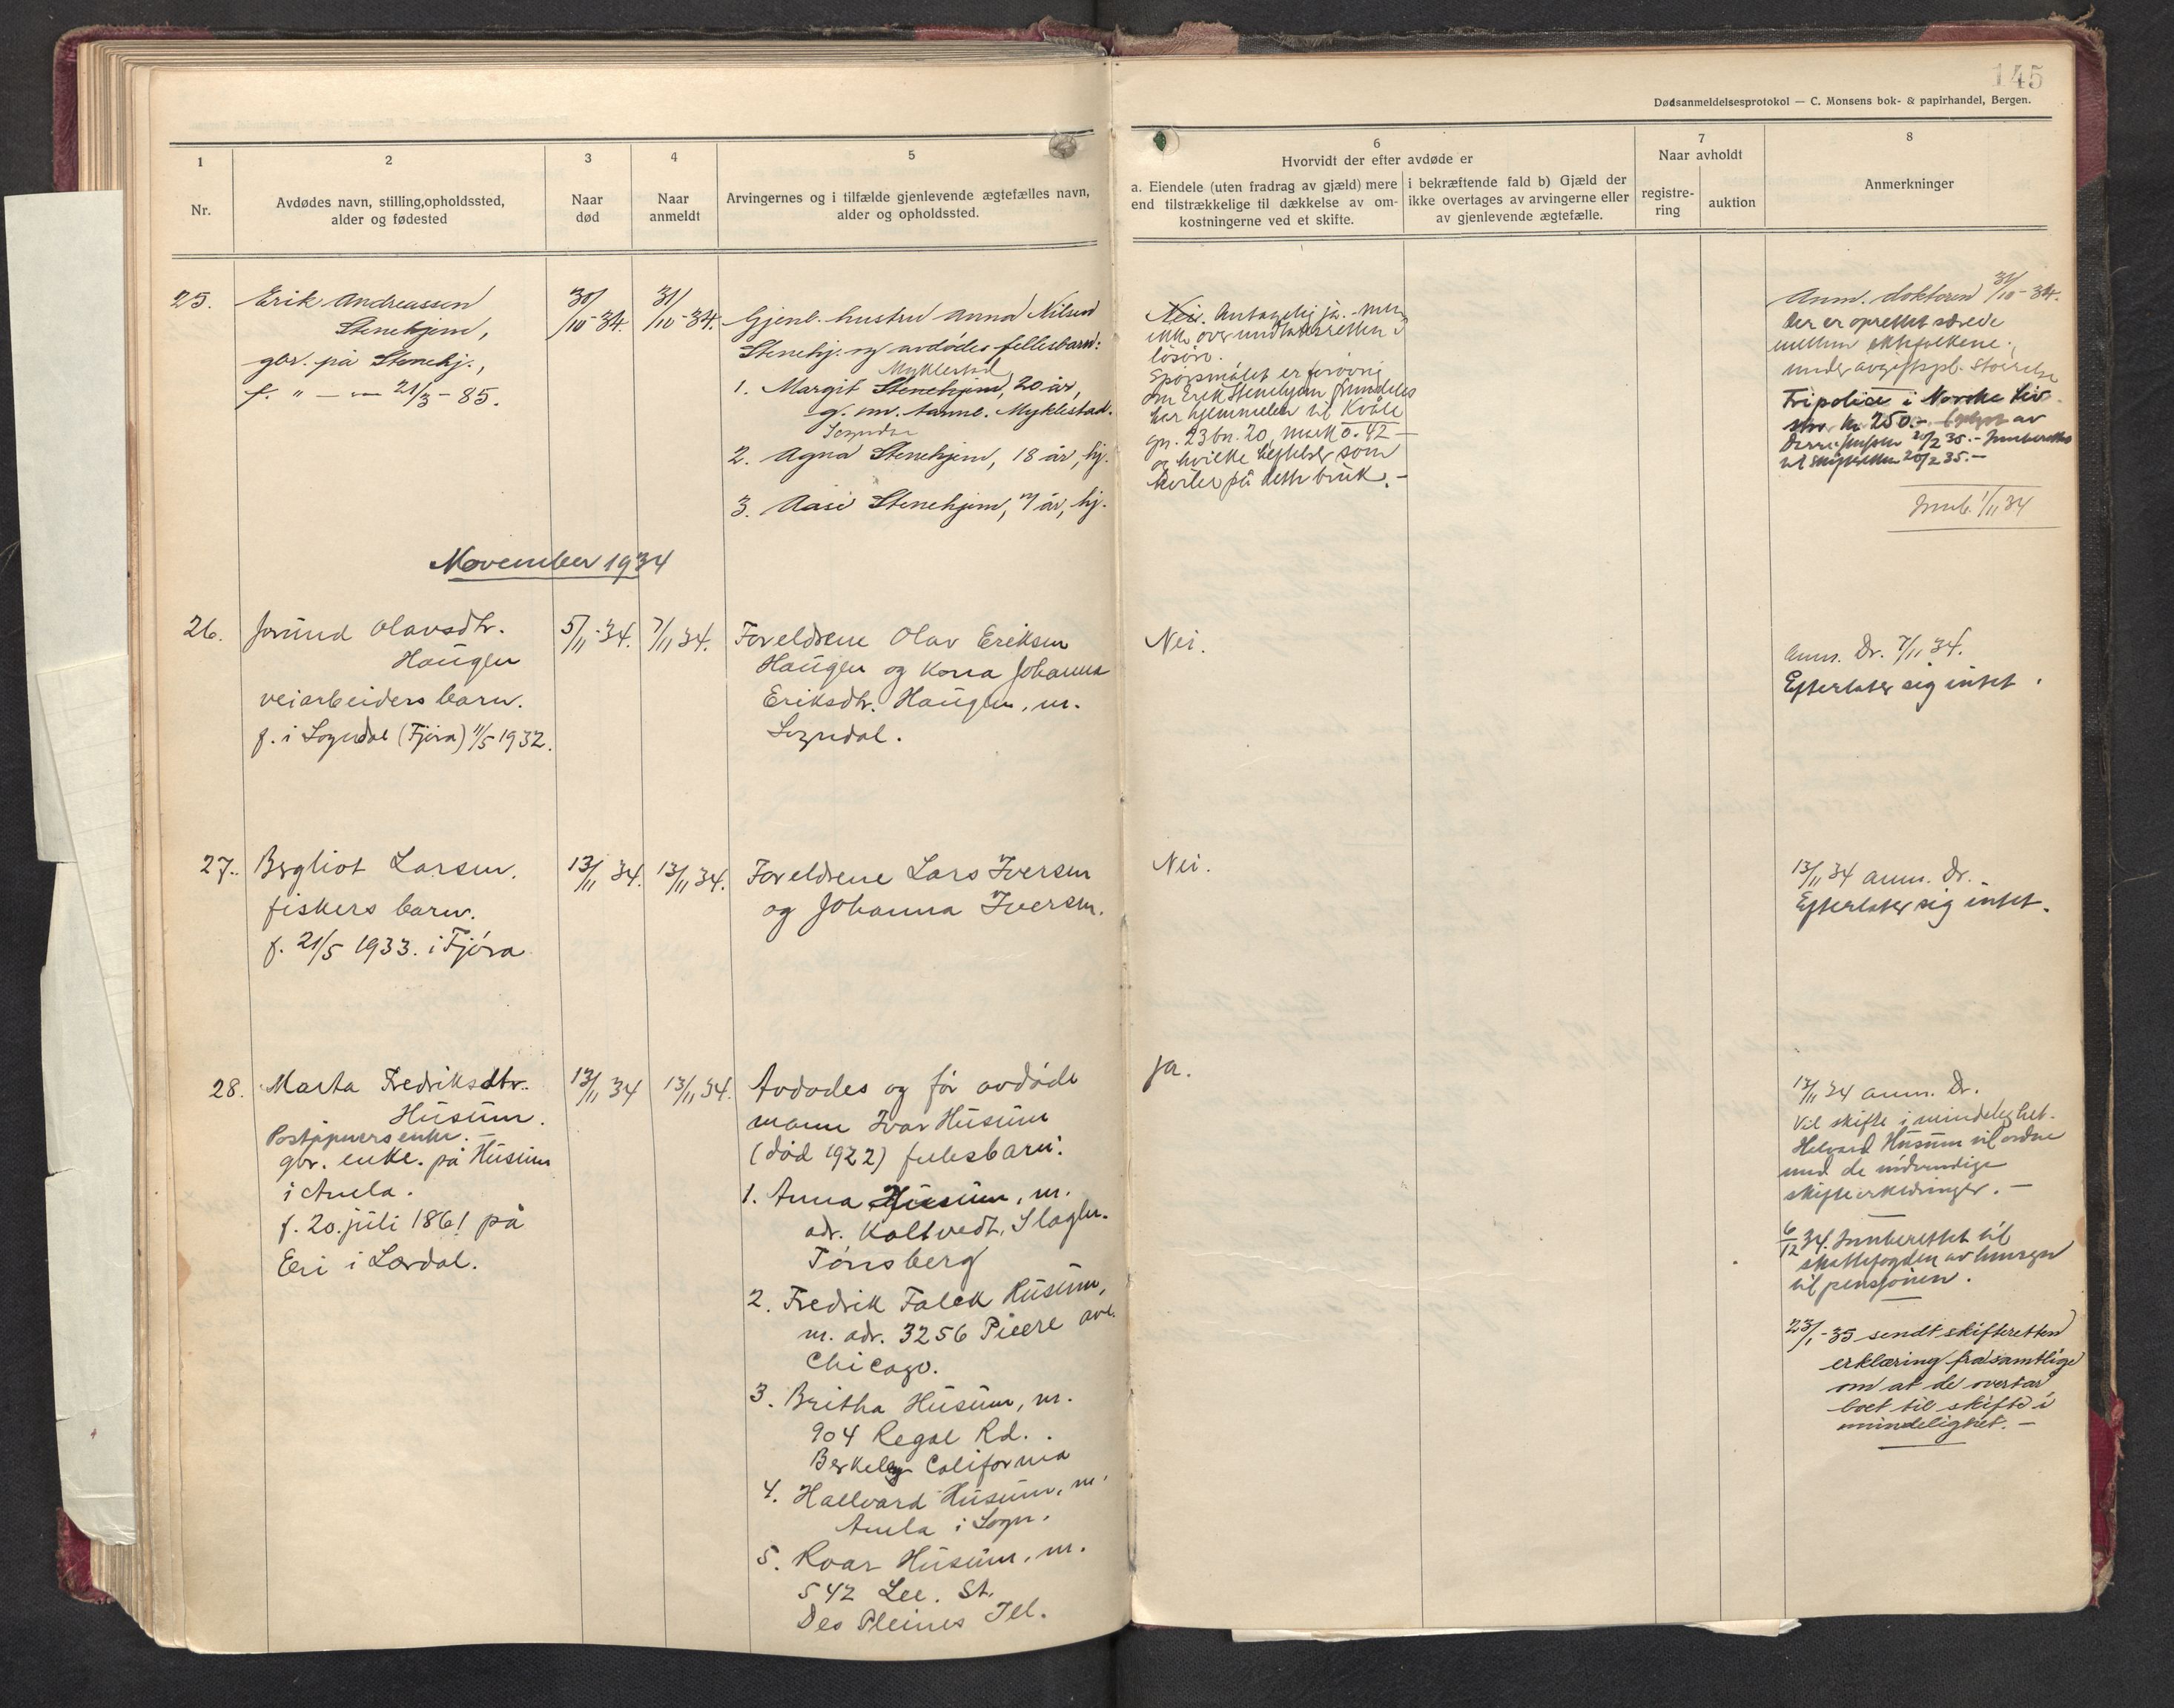 145
Dødsanmeldelsesprotokol — C. Monsens bok- & papirhandel, Bergen.
1
Nr.
2
Avdødes navn, stilling, opholdssted,
alder og fødested
3
Naar
død
4
Naar
anmeldt
5
Arvingernes og i tilfælde gjenlevende ægtefælles navn,
alder og opholdssted.
6
Hvorvidt der efter avdøde er
a. Eiendele (uten fradrag av gjæld) mere
end tilstrækkelige til dækkelse av om-
kostningerne ved et skifte.
i bekræftende fald b) Gjæld der
ikke overtages av arvingerne eller
av gjenlevende ægtefælle.
7
Naar avholdt
registre-
ring
auktion
8
Anmerkninger
25.
Erik Andreassen
Stenehjem,
gbr. på Stenehj.,
f. " — 21/3 - 85.
30/10-34.
31/10-34.
Gjenl. hustru Anna Nilsen
Stenehj. og avdødes fellesbarn:
Myklestad
1. Margit Stenehjem, 20 år,
g. m. Myklestad.
Sogndal
2. Agna Stenehjem, 18 år, hj.
3. Aase Stenehjem, 7 år, hj.
Nei. Antagelig ja. - men
ikke over
løsøre.
Spørsmålet er forøvrig
om Erik Stenehjem fremdeles
har hjemmelen til Kvåle
gn. 23 bn. 20, mark 0.42 —
og hvilke heftelser som
hviler på dette bruk. -
Anm. doktoren 31/10-34.
Der er oprettet særeie
mellem ektefolkene.
under
Fripolise i Norske Liv
stor kr. 250.- av
20/2 35.- Innberettet
til skifteretten 20/2 35.-
Innb. 1/11 34
November 1934
26.
Jorund Olavsdtr.
Haugen
veiarbeiders barn.
f. i Sogndal (Fjøra) 11/5 1932.
5/11-34.
7/11 34.
Foreldrene Olav Eriksen
Haugen og kona Johanna
Eriksdtr. Haugen, m.
Sogndal.
Nei.
Anm. Dr. 7/11 34.
Efterlater sig intet.
27.
Bergliot Larsen.
fiskers barn.
f. 21/5 1933. i Fjøra
13/11 34.
13/11 34.
Foreldrene Lars Iversen
og Johanna Iversen.
Nei.
13/11 34 anm. Dr.
Efterlater sig intet.
28.
Marta Fredriksdtr.
Husum.
Poståpners enke. —
gbr. enke. på Husum
i Amla.
f. 20. juli 1861 på
Eri i Lærdal.
13/11 34
13/11 34.
Avdødes og før avdøde
mann Ivar Husum
(død 1922) fellesbarn:
1. Anna Husum, m.
adr. Kaltvedt, Slagen.
Tønsberg
2. Fredrik Falck Husum,
m. adr. 3256 Pieere ave.
Chicago.
3. Britha Husum, m.
904 Regal Rd.
Berkeley California
4. Hallvard Husum, m.
Amla i Sogn.
5. Roar Husum, m.
542 Lee. St.
Des Pleines Ill.
Ja.
13/11 34 anm. Dr.
Vil skifte i mindelighet.
Halvard Husum vil ordne
med de nødvendige
skifteerklæringer. —
6/12 34. Innberettet til
skattefogden av hensyn
til pensjonen.
23/1-35 sendt skifteretten
erklæring fra samtlige
om at de overtar
boet til skifte i
mindelighet. —